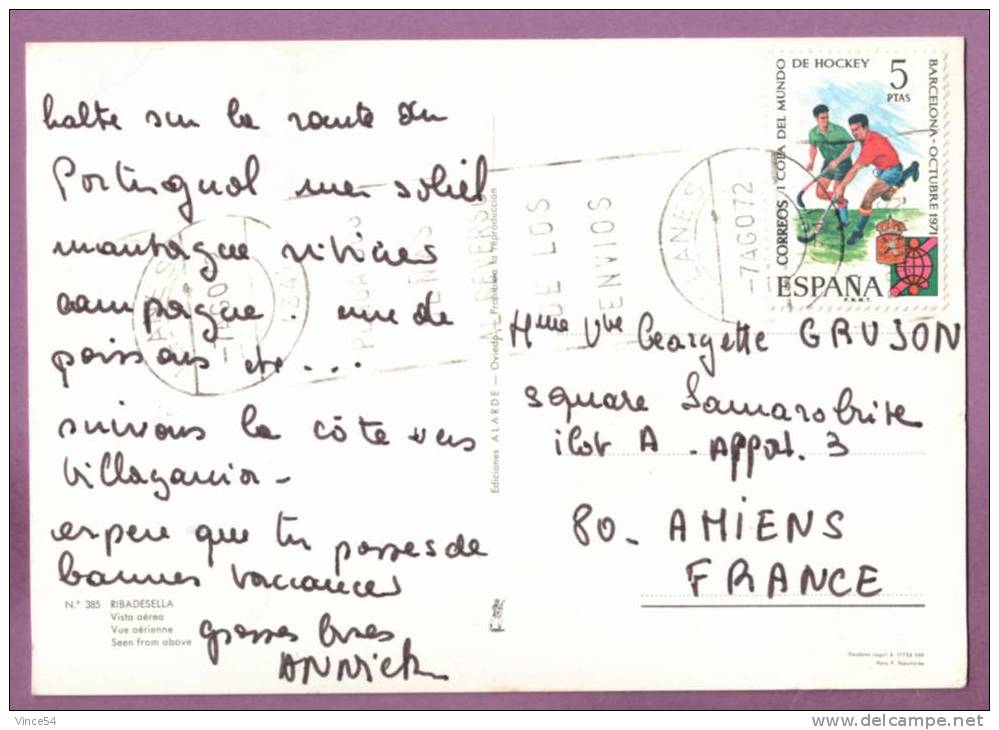 halte sur la route du
Portugual mer soleil
montagne rivières
campagne. une de
poissons etc...
suivons la côte vers
Villagarcia -
espere que tu passes de
bonnes vaccances
grosses bises
ANNick
N.º 385 RIBADESELLA
Vista aérea
Vue aérienne
Seen from above
Ediciones ALARDE — Oviedo — Prohibida la reproducción
LLANES
-7AGO72
AL REVERSO
DE LOS
ENVIOS
CORREOS I COPA DEL MUNDO DE HOCKEY
BARCELONA-OCTUBRE 1971
5
PTAS
ESPAÑA
F.N.M.T.
Mme Vve Georgette GRUJON
square Samarobrive
ilot A - Appat. 3
80 - AMIENS
FRANCE
Vince54
www.delcampe.net